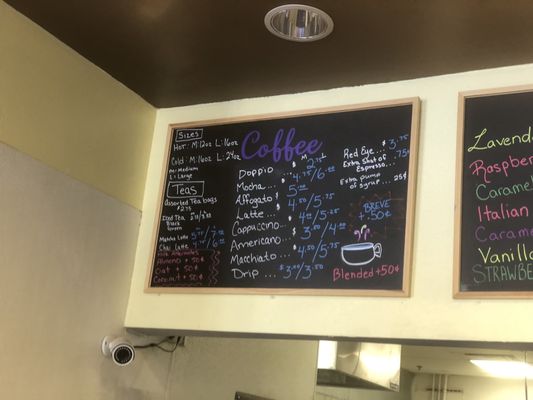 Sizes
Hot: M:12oz L:16oz
Cold: M:16oz L:24oz
M = Medium
L = Large
Teas
Assorted Tea bags
$2.75
Iced Tea $3/$3.50
Black
Green
Matcha Latte
Chai Latte 4.75/6
Milk Alternatives
Almond + 50¢
Oat + 50¢
Coconut + 50¢
Coffee
M L
Doppio ... $2.75
Mocha ... $4.75/6.00
Affogato $5.00
Latte ... $4.50/5.75
Cappuccino $4/5.25
Americano ... $3.50/4
Macchiato ... $4.50/5.75
Drip ... $3.00/3.50
Red Eye ... $3.75
Extra Shot of Espresso ... .75
Extra pump
of syrup ... 25¢
BREVE
+ .50¢
Blended + 50¢
Lavender
Raspberr
Caramel
Italian
Caramel
Vanilla
STRAWBE